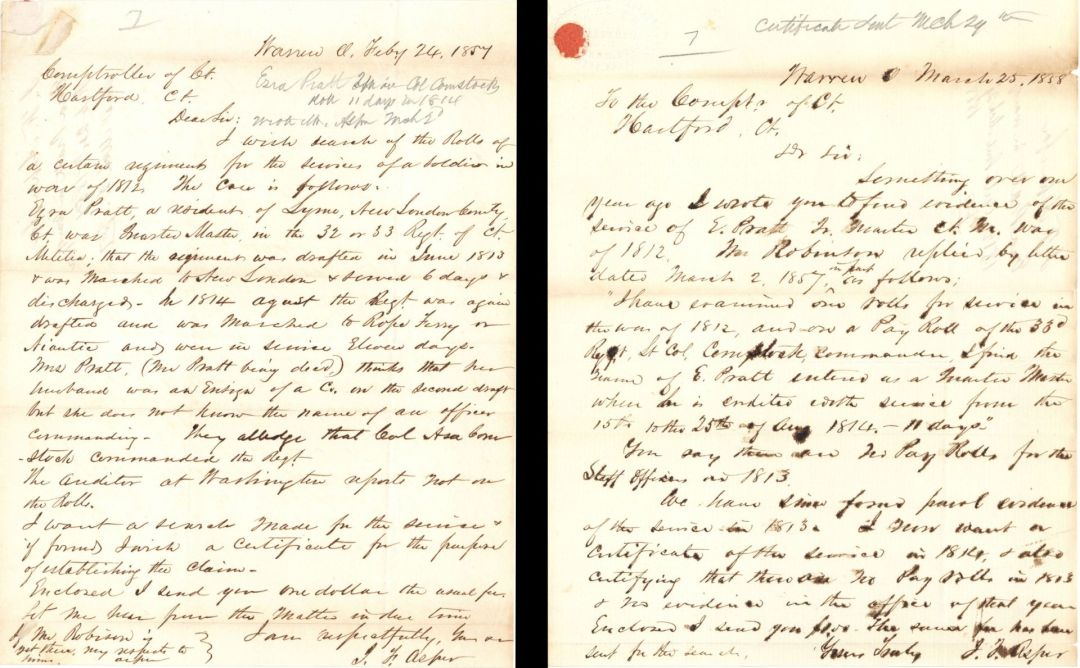 7
Warren O. Feby 24, 1857
Comptroller of Ct.
Hartford Ct.
Ezra Pratt Col Comstock
11 days in 1814
Dear Sir:
I wish search of the Rolls of
a certain regiment for the services of a soldier in
war of 1812. The case is follows.
Ezra Pratt, a resident of Lyme, New London County,
Ct. was Quarter Master, in the 32 or 33 Regt. of Ct.
Militia; that the regiment was drafted in June 1813
& was marched to New London & served 6 days &
discharged - In 1814 August the Regt was again
drafted and was marched to Rope Ferry or
Niantic and were in service Eleven days.
Mrs Pratt, (Mr Pratt being died) thinks that her
husband was an Ensign of a Co. on the second draft
but she does not know the name of an officer
commanding - They alledge that Col Asa Com
-stock commanded the Regt
The Auditor at Washington reports not on
the Rolls.
I want a search made for the service &
if found I wish a certificate for the purpose
of establishing the claim -
Enclosed I send you one dollar the usual fee
Let me hear from the matter in due time
If Mr Robison is
yet there, my respects to
him. Asper
I am respectfully, Your
J. F. Asper
Certificate Sent Mch 29
7
Warren O March 25, 1858
To the Compt's of Ct.
Hartford, Ct.
Dr Sir:
Something over one
year ago I wrote you to find evidence of the
service of E. Pratt Qr. Master Ct. War
of 1812. Mr Robinson replied, by letter
dated March 2, 1857, in part as follows;
"I have examined our rolls for service in
the war of 1812, and on a Pay Roll of the 33d
Regt, Lt Col. Comstock, commander, I find the
name of E. Pratt entered as a Quarter Master
when he is credited with service from the
15th to the 25th of Aug 1814. - 11 days."
You say there are no Pay Rolls for the
Staff Officers in 1813.
We have since found parol evidence
of the service in 1813. I now want a
certificate of the service in 1814, & also
certifying that there are no Pay rolls in 1813
& no evidence in the office of that year
Enclosed I send you The same fee has been
sent for the search.
Yours Truly J. F. Asper